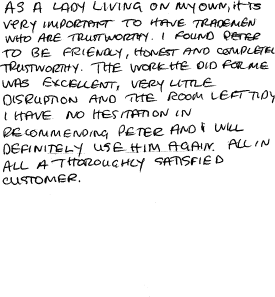 AS A LADY LIVING ON MY OWN, IT IS
VERY IMPORTANT TO HAVE TRADEMEN
WHO ARE TRUSTWORTHY. I FOUND PETER
TO BE FRIENDLY, HONEST AND COMPLETEL
TRUSTWORTHY. THE WORK HE DID FOR ME
WAS EXCELLENT, VERY LITTLE
DISRUPTION AND THE ROOM LEFT TIDY
I HAVE NO HESITATION IN
RECOMMENDING PETER AND I WILL
DEFINITELY USE HIM AGAIN. ALL IN
ALL A THOROUGHLY SATISFIED
CUSTOMER.